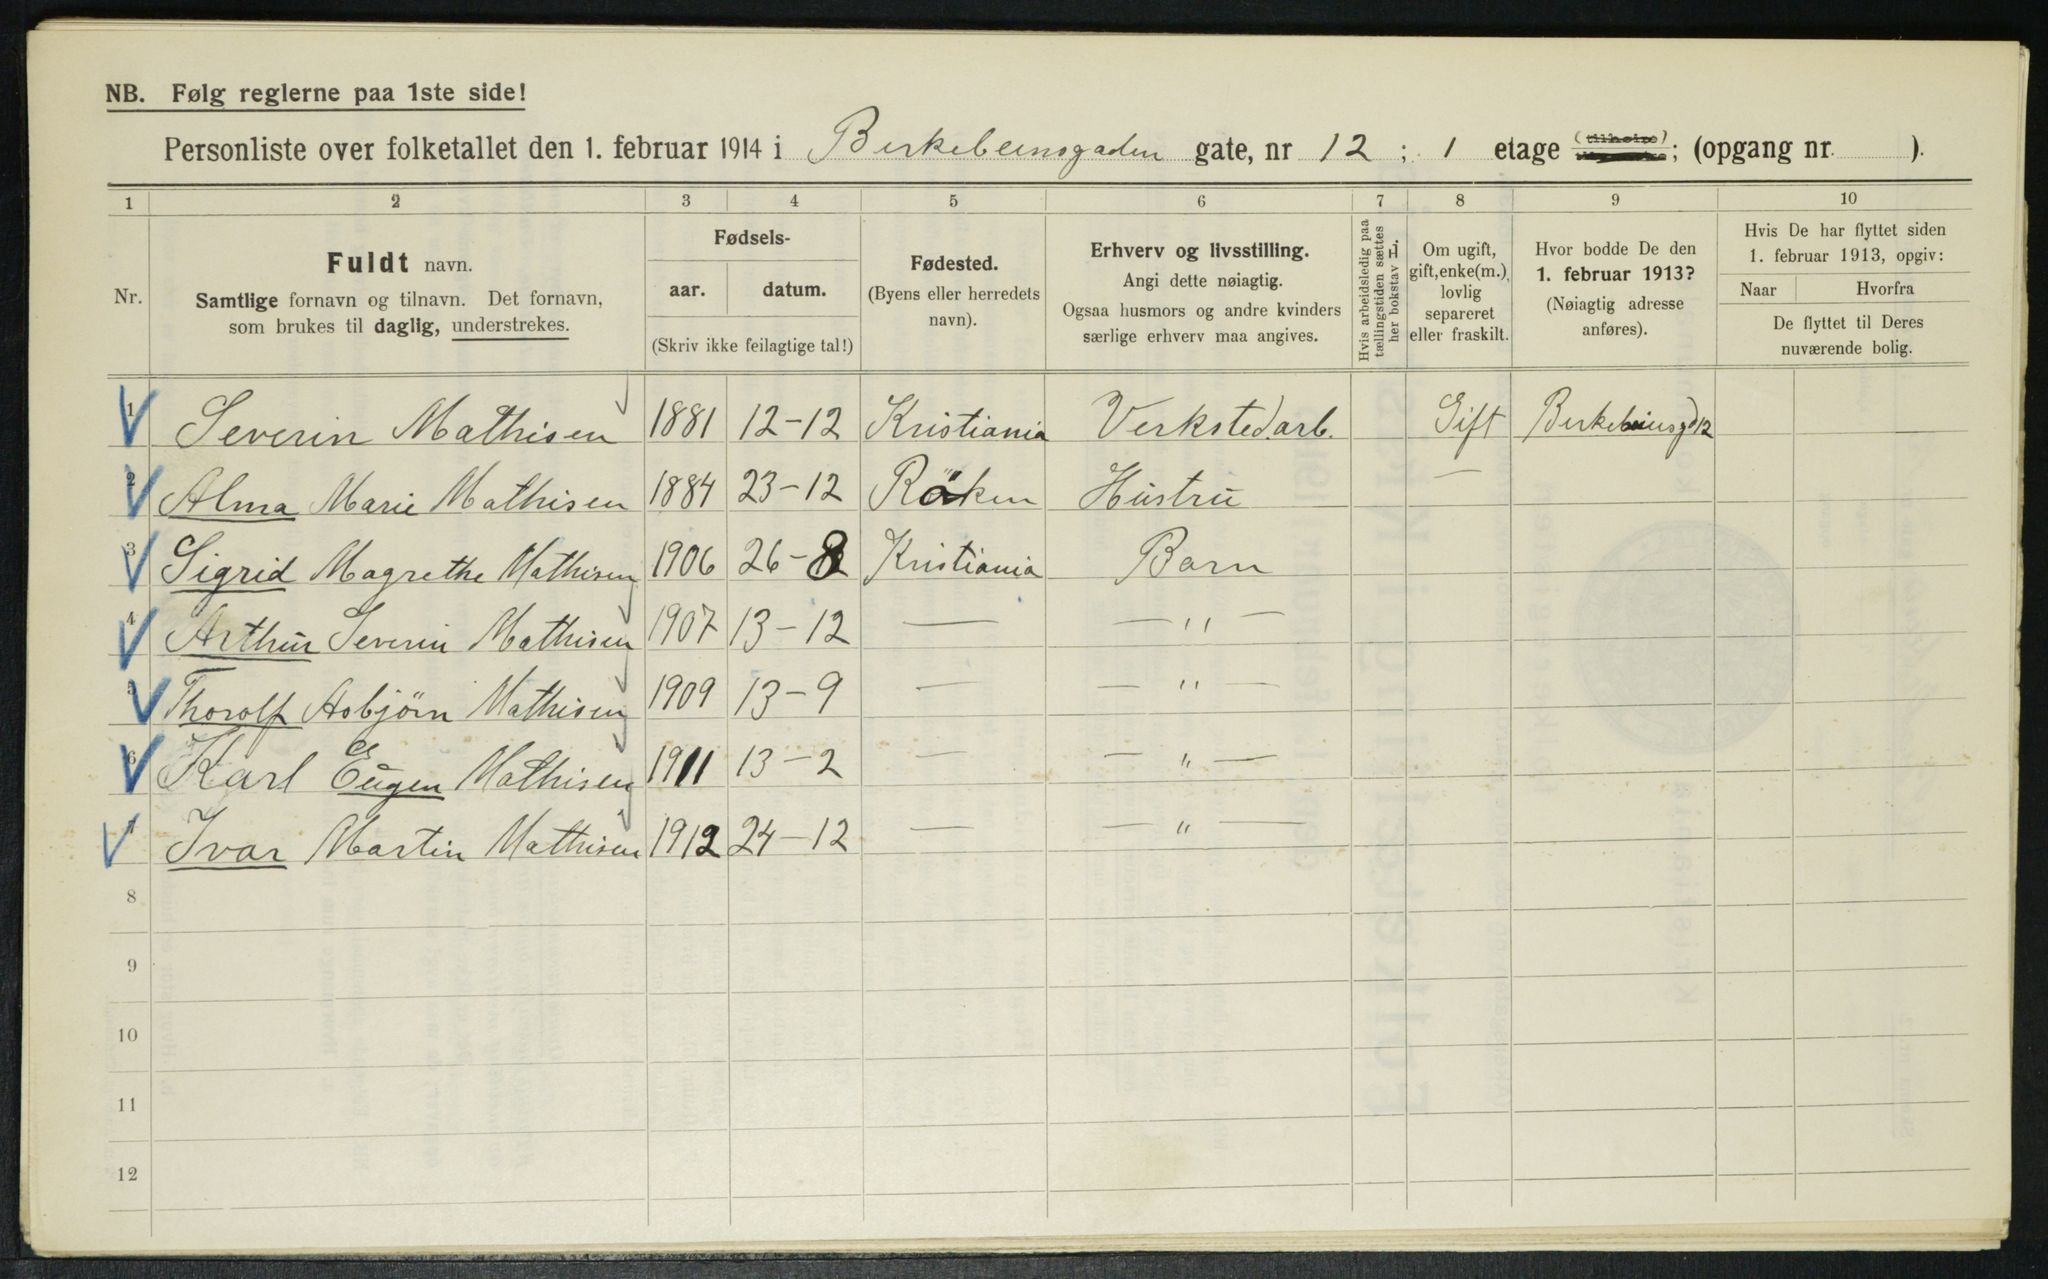 NB. Følg reglerne paa 1ste side!
Personliste over folketallet den 1. februar 1914 i Birkebeinsgaden gate, nr 12 ; 1 etage ; (opgang nr. ).
1 2 3 4 5 6 7 8 9 10
Nr.
Fuldt navn.
Samtlige fornavn og tilnavn. Det fornavn,
som brukes til daglig, understrekes.
Fødsels-
aar. datum.
(Skriv ikke feilagtige tal!)
Fødested.
(Byens eller herredets
navn).
Erhverv og livsstilling.
Angi dette nøiagtig.
Ogsaa husmors og andre kvinders
særlige erhverv maa angives.
Hvis arbeidsledig paa
tællingstiden sættes
her bokstav L.
Om ugift,
gift, enke(m.),
lovlig
separeret
eller fraskilt.
Hvor bodde De den
1. februar 1913?
(Nøiagtig adresse
anføres).
Hvis De har flyttet siden
1. februar 1913, opgiv:
Naar Hvorfra
De flyttet til Deres
nuværende bolig.
1 Severin Mathisen 1881 12-12 Kristiania Verksted.arb. Gift Birkebeinsgd 12
2 Alma Marie Mathisen 1884 23-12 Röken Hustru —
3 Sigrid Magrethe Mathisen 1906 26-8 Kristiania Barn
4 Arthur Severin Mathisen 1907 13-12 — — " —
5 Thorolf Asbjörn Mathisen 1909 13-9 — — " —
6 Karl Eugen Mathisen 1911 13-2 — — " —
Ivar Martin Mathisen 1912 24-12 — — " —
8
9
10
11
12